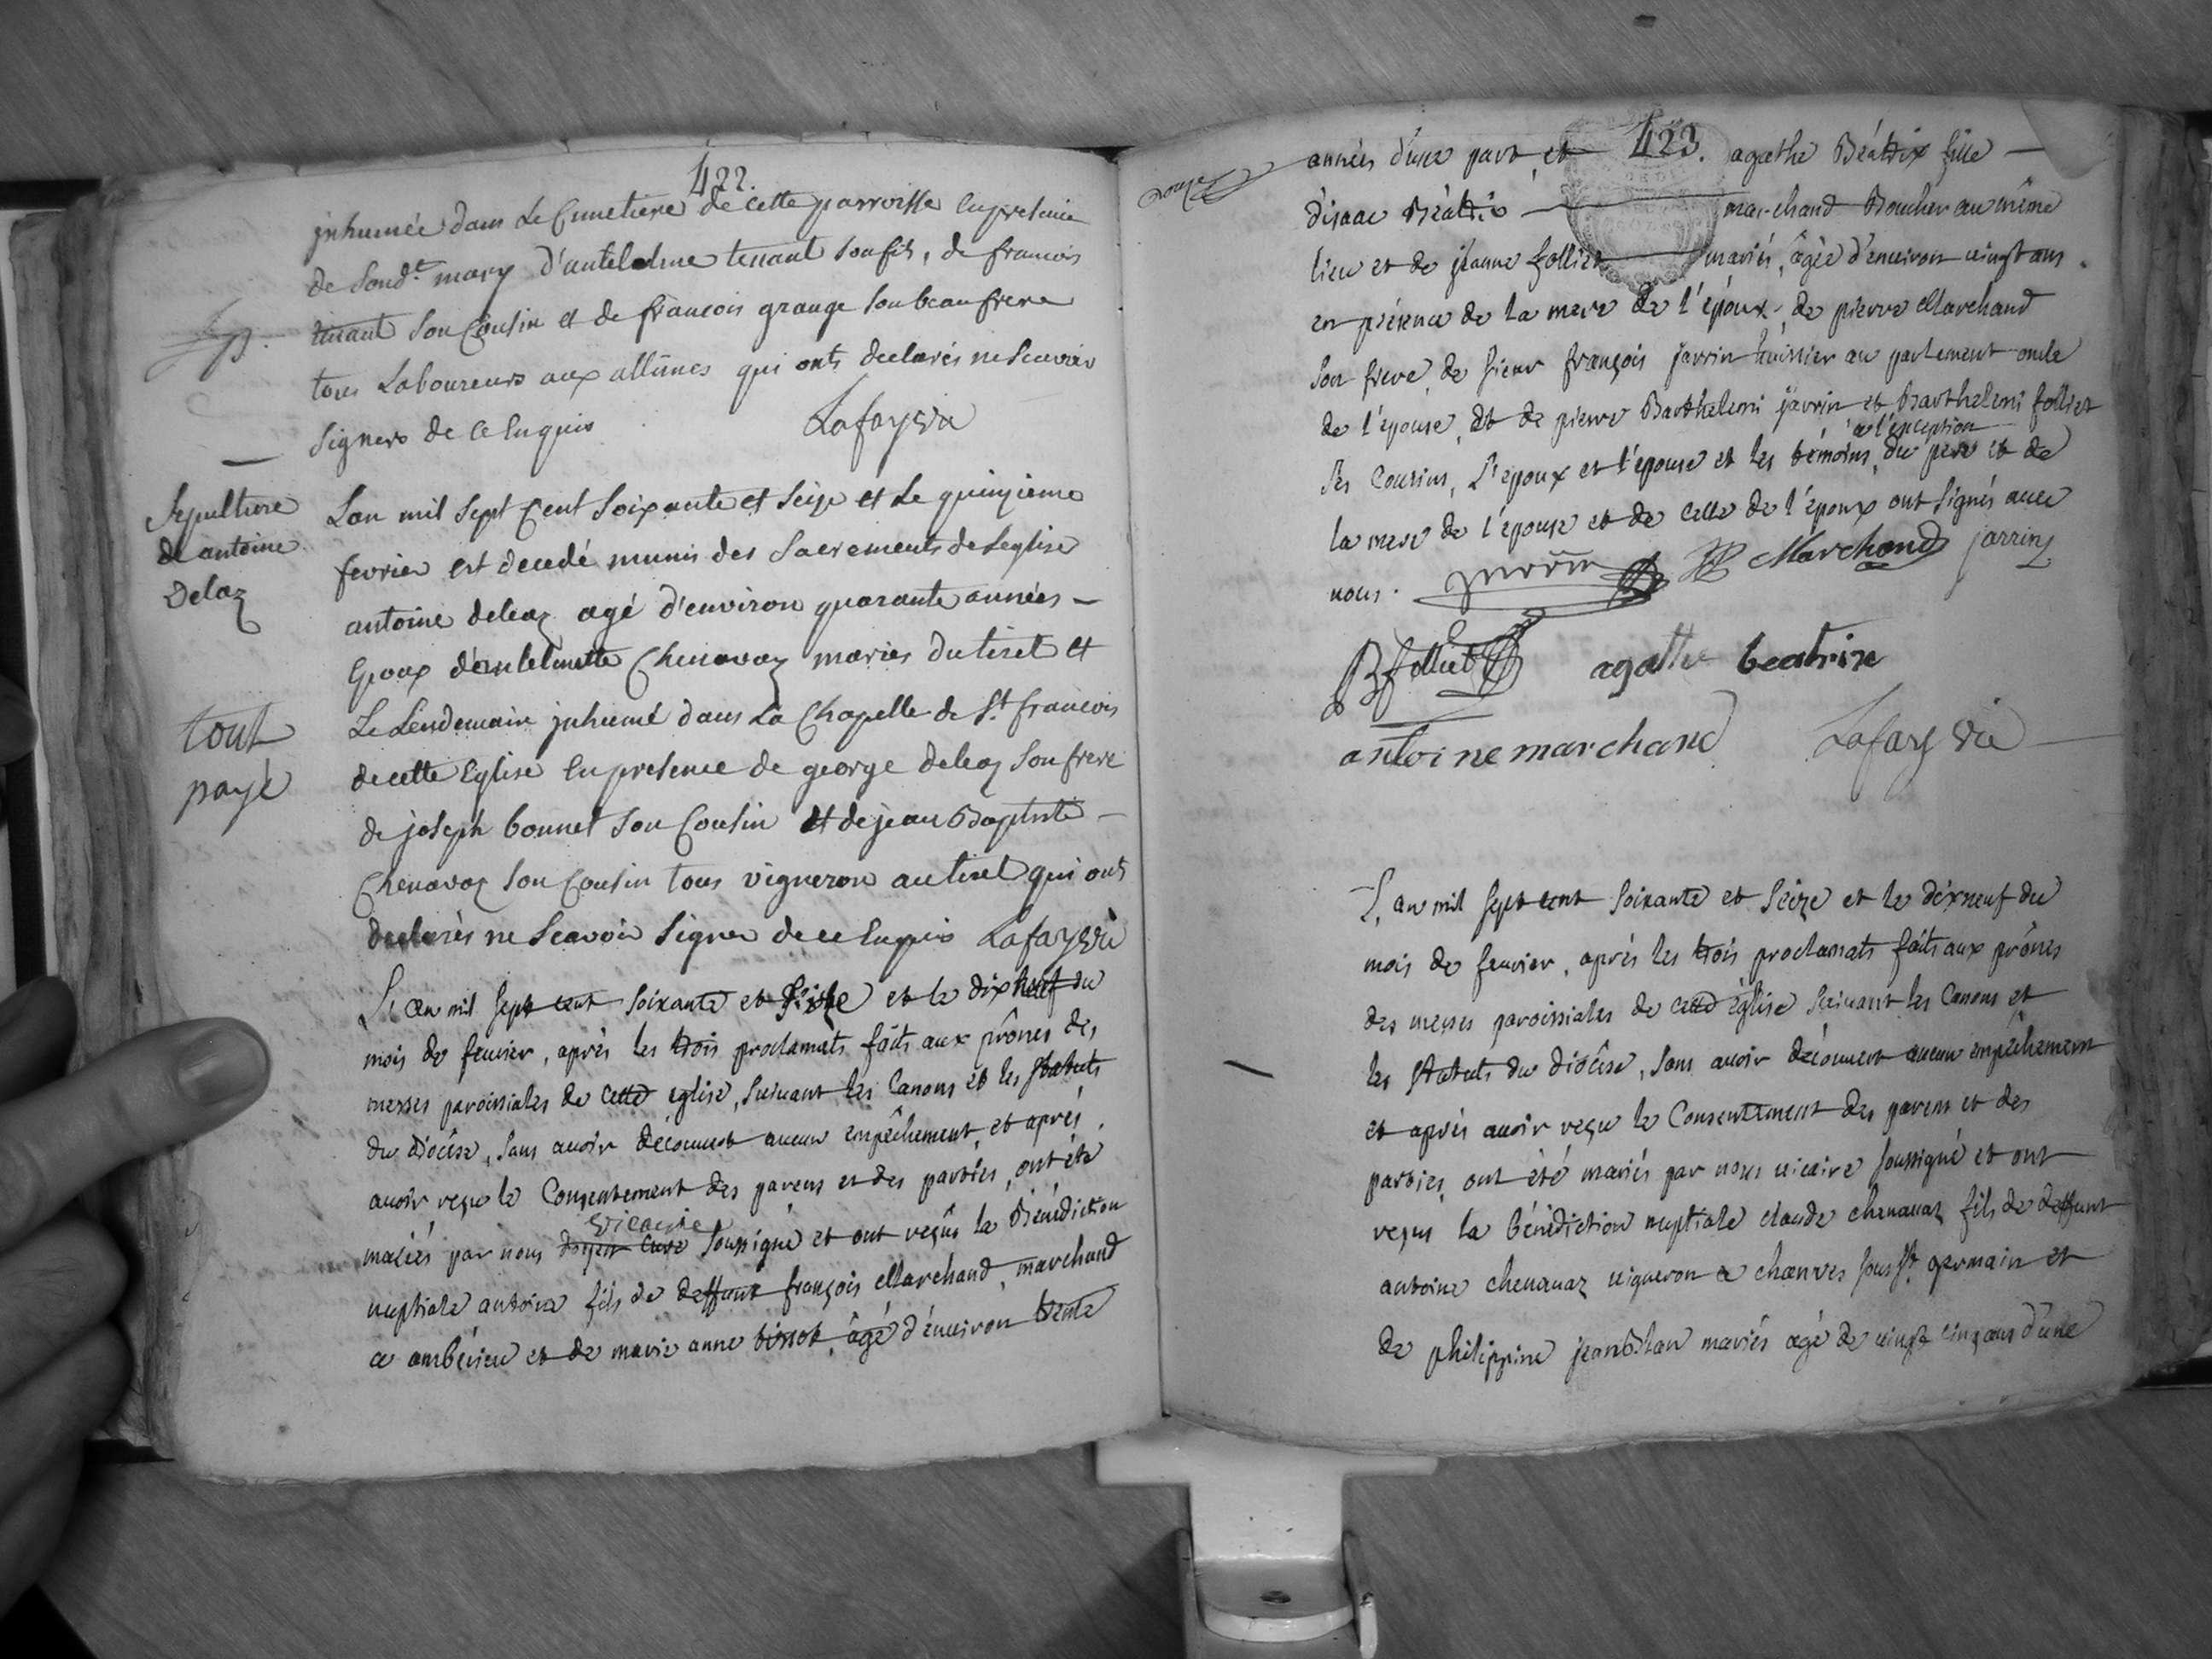 422.
inhumée dans Le Cimetiere de cette parroisse En presence
de Sond.t mary d'antelelme tenant son fils, de francois
tenant Son Cousin et de francois grange Son beau frere
tous Laboureurs aux allimes qui onts declarés ne Scavoir
Signers de ce Enquis Lafaysvie
Sepulture
de antoine
Delaz
Lan mil Sept Cent Soixante et Seize et Le quinzieme
fevrier est decedé munis des Sacrements de Leglise
antoine deleaz agé d'environ quarante années -
Epoux d'antelmette Chenavaz maries du tiret et
tout
payé
Le Lendemain inhumé dans La Chapelle de St francois
de cette Eglise En presence de george deleaz Son frere
de joseph bonnet Son Cousin et de jean Baptiste -
Chenavaz Son Cousin tous vigneron au tiret qui onts
declarés ne Scavoir Signer de ce Enquis Lafaysvie
L'an mil sept cent soixante et seize et le dix neuf du
mois de feurier, après les trois proclamats faits aux prônes des
messes paroissiales de cette eglise, suiuant les Canons et les statuts
du diocêse, sans auoir découuert aucun empêchement, et après
auoir reçu le Consentement des parens et des parties, ont été
vicaire
mariés par nous soussigné et ont reçûs la Bénédiction
nuptiale antoine fils de deffunt françois Marchand, marchand
a ambérieu et de marie anne tissot, âgé d'enuiron trente
423.
années d'une part, et agathe Béatrix fille -
d'isaac Béatrix marchand Boucher au même
lieu et de jeanne folliet mariés, âgée d'enuiron uingt ans.
en présence de la mere de l'époux, de pierre Marchand
son frere, de sieur françois jarrin huissier au parlement oncle
de l'épouse, et de pierre Barthelemi jarrin et Barthelemi folliet
ses Cousins, L'epoux et l'épouse et les témoins, du pere et de
a l'exception
la mere de l'épouse et de celle de l'époux ont signés auec
nous. jarrin P Marchand jarrin
B folliet agathe beatrixe
antoine marchand Lafaysvie
L'an mil sept cent soixante et seize et le dixneuf du
mois de feurier, après les trois proclamats faits aux prônes
des messes paroissiales de cette église suiuant les Canons et
les statuts du diocêse, sans auoir découuert aucun empêchement
et après auoir reçu le Consentement des parens et des
parties, ont été mariés par nous uicaire soussigné et ont
reçus la bénédiction nuptiale claude chenauaz fils de deffunt
antoine chenauaz uigneron a chanves sous St germain et
de philippine jeanblan mariés agé de uingt cinq ans d'une